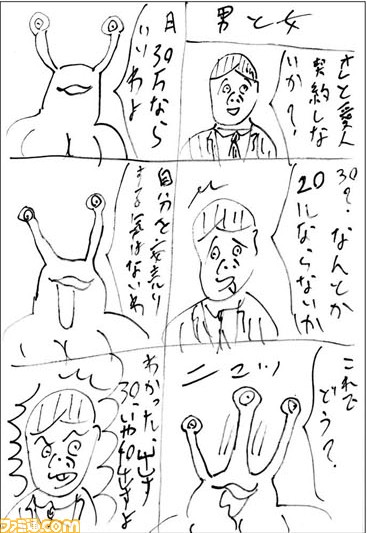 男と女
オレと愛人
契約しな
いか?
月
30万なら
いいわよ
30?なんとか
20にならないか
自分を安売り
する気はないわ
ニュッ
これで
どう?
わかった、出す
30、いや40出すよ
ファミ通.com